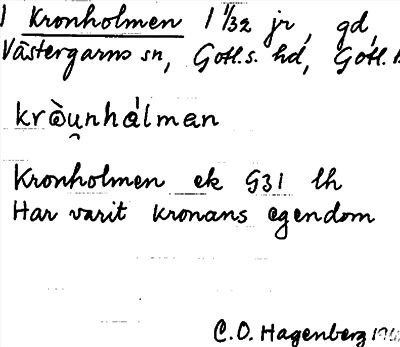 1 Kronholmen 1 1/32 jr, gd,
Västergarns sn, Gotl.s. hd, Gotl. l.
kròu̯nhálmen
Kronholmen ek G31 lh
Har varit kronans egendom
C.O. Hagenberg